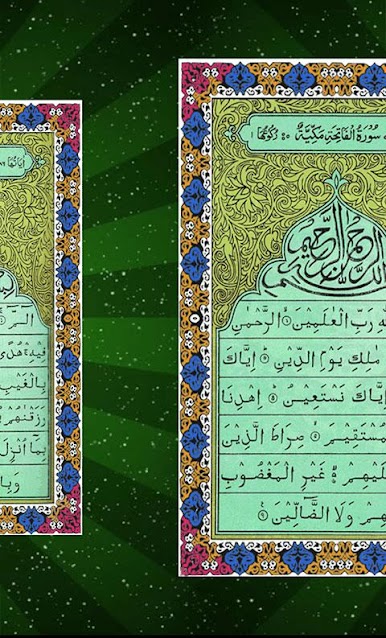 سُوْرَةُ الْفَاتِحَةِ مَكِّيَّةٌ رُكُوْعُهَا ١
الرَّحْمٰنِ الرَّحِيْمِ
رَبِّ الْعٰلَمِيْنَ ۙ الرَّحْمٰنِ
مٰلِكِ يَوْمِ الدِّيْنِ ؕ اِيَّاكَ
اِيَّاكَ نَسْتَعِيْنُ ؕ اِهْدِنَا
مُسْتَقِيْمَ ۙ صِرَاطَ الَّذِيْنَ
لَيْهِمْ ۙ غَيْرِ الْمَغْضُوْبِ
هِمْ وَلَا الضَّآلِّيْنَ
اٰيَاتُهَا ٢٨٦
الٓمّٓ
فِيْهِ ۛ هُدًى
بِالْغَيْبِ
رَزَقْنٰهُمْ
بِمَآ اُنْزِلَ
وَبِا